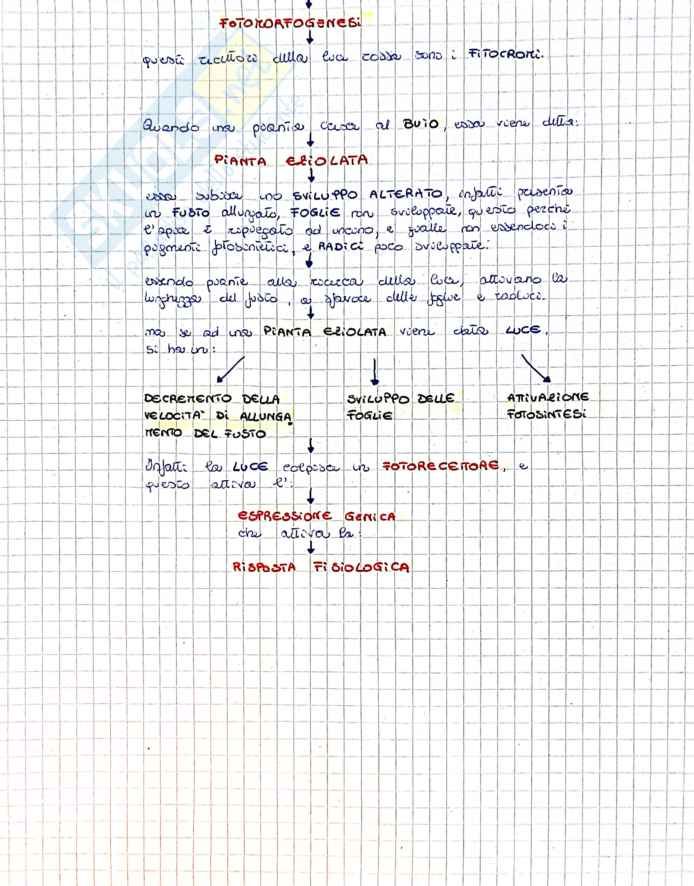 FOTOMORFOGENESI
questi recettori della luce rossa sono i FITOCROMI.
Quando una pianta cresce al BUIO, essa viene detta:
PIANTA EZIOLATA
essa subisce uno SVILUPPO ALTERATO, infatti presenta
un FUSTO allungato, FOGLIE non sviluppate, questo perché
l'apice è ripiegato ad uncino, e gialle non essendoci i
pigmenti fotosintetici, e RADICI poco sviluppate.
essendo piante alla ricerca della luce, attivano la
lunghezza del fusto, a sfavore delle foglie e radici.
ma se ad una PIANTA EZIOLATA viene data LUCE,
si ha un:
DECREMENTO DELLA
VELOCITA' DI ALLUNGA
MENTO DEL FUSTO
SVILUPPO DELLE
FOGLIE
ATTIVAZIONE
FOTOSINTESI
Infatti la LUCE colpisce un FOTORECETTORE, e
questo attiva l':
ESPRESSIONE GENICA
che attiva la:
RISPOSTA FISIOLOGICA
SKUOLA.net